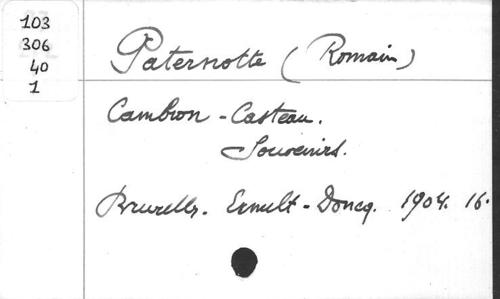 103
306
40
1
Paternotte (Romain)
Cambron-Casteau.
Souvenirs.
Bruxelles. Ernult-Doncq. 1904. 16.